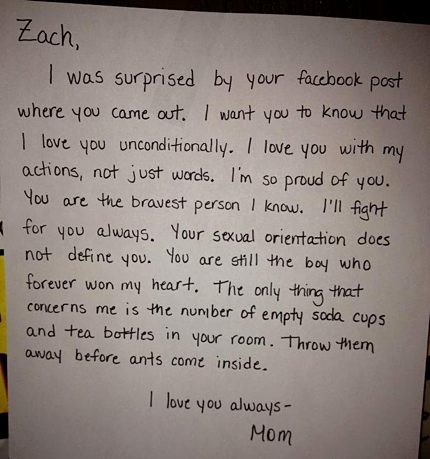 Zach,
I was surprised by your facebook post
where you came out. I want you to know that
I love you unconditionally. I love you with my
actions, not just words. I'm so proud of you.
You are the bravest person I know. I'll fight
for you always. Your sexual orientation does
not define you. You are still the boy who
forever won my heart. The only thing that
concerns me is the number of empty soda cups
and tea bottles in your room. Throw them
away before ants come inside.
I love you always-
Mom